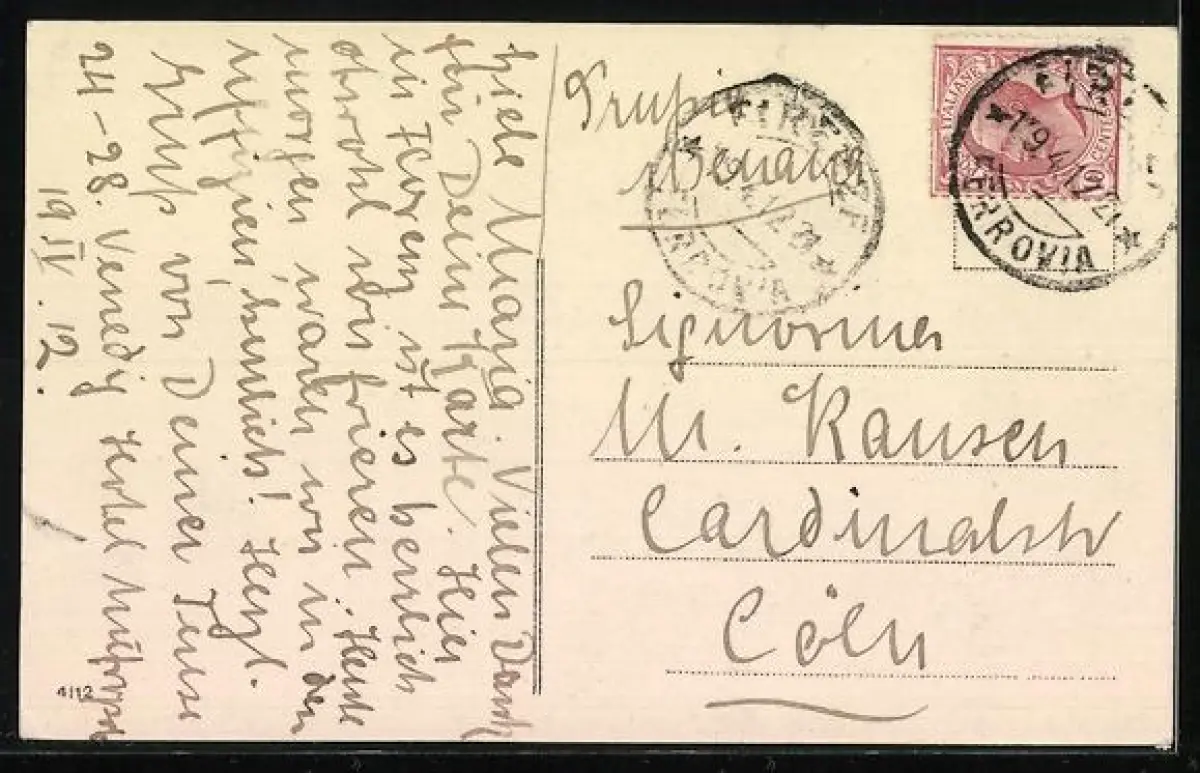 Liebe Maria. Vielen Dank
für Deine Karte. Hier
in Florenz ist es herrlich
obwohl wir frieren. Heute
morgen waren wir in den
Uffizien, herrlich! Herzl.
Gruß von Deiner
24-28. Venedig Hotel
19 IV. 12.
4112
FIRENZE
FERROVIA
FERROVIA
Signorina
M. Kausen
Cardinalstr
Cöln